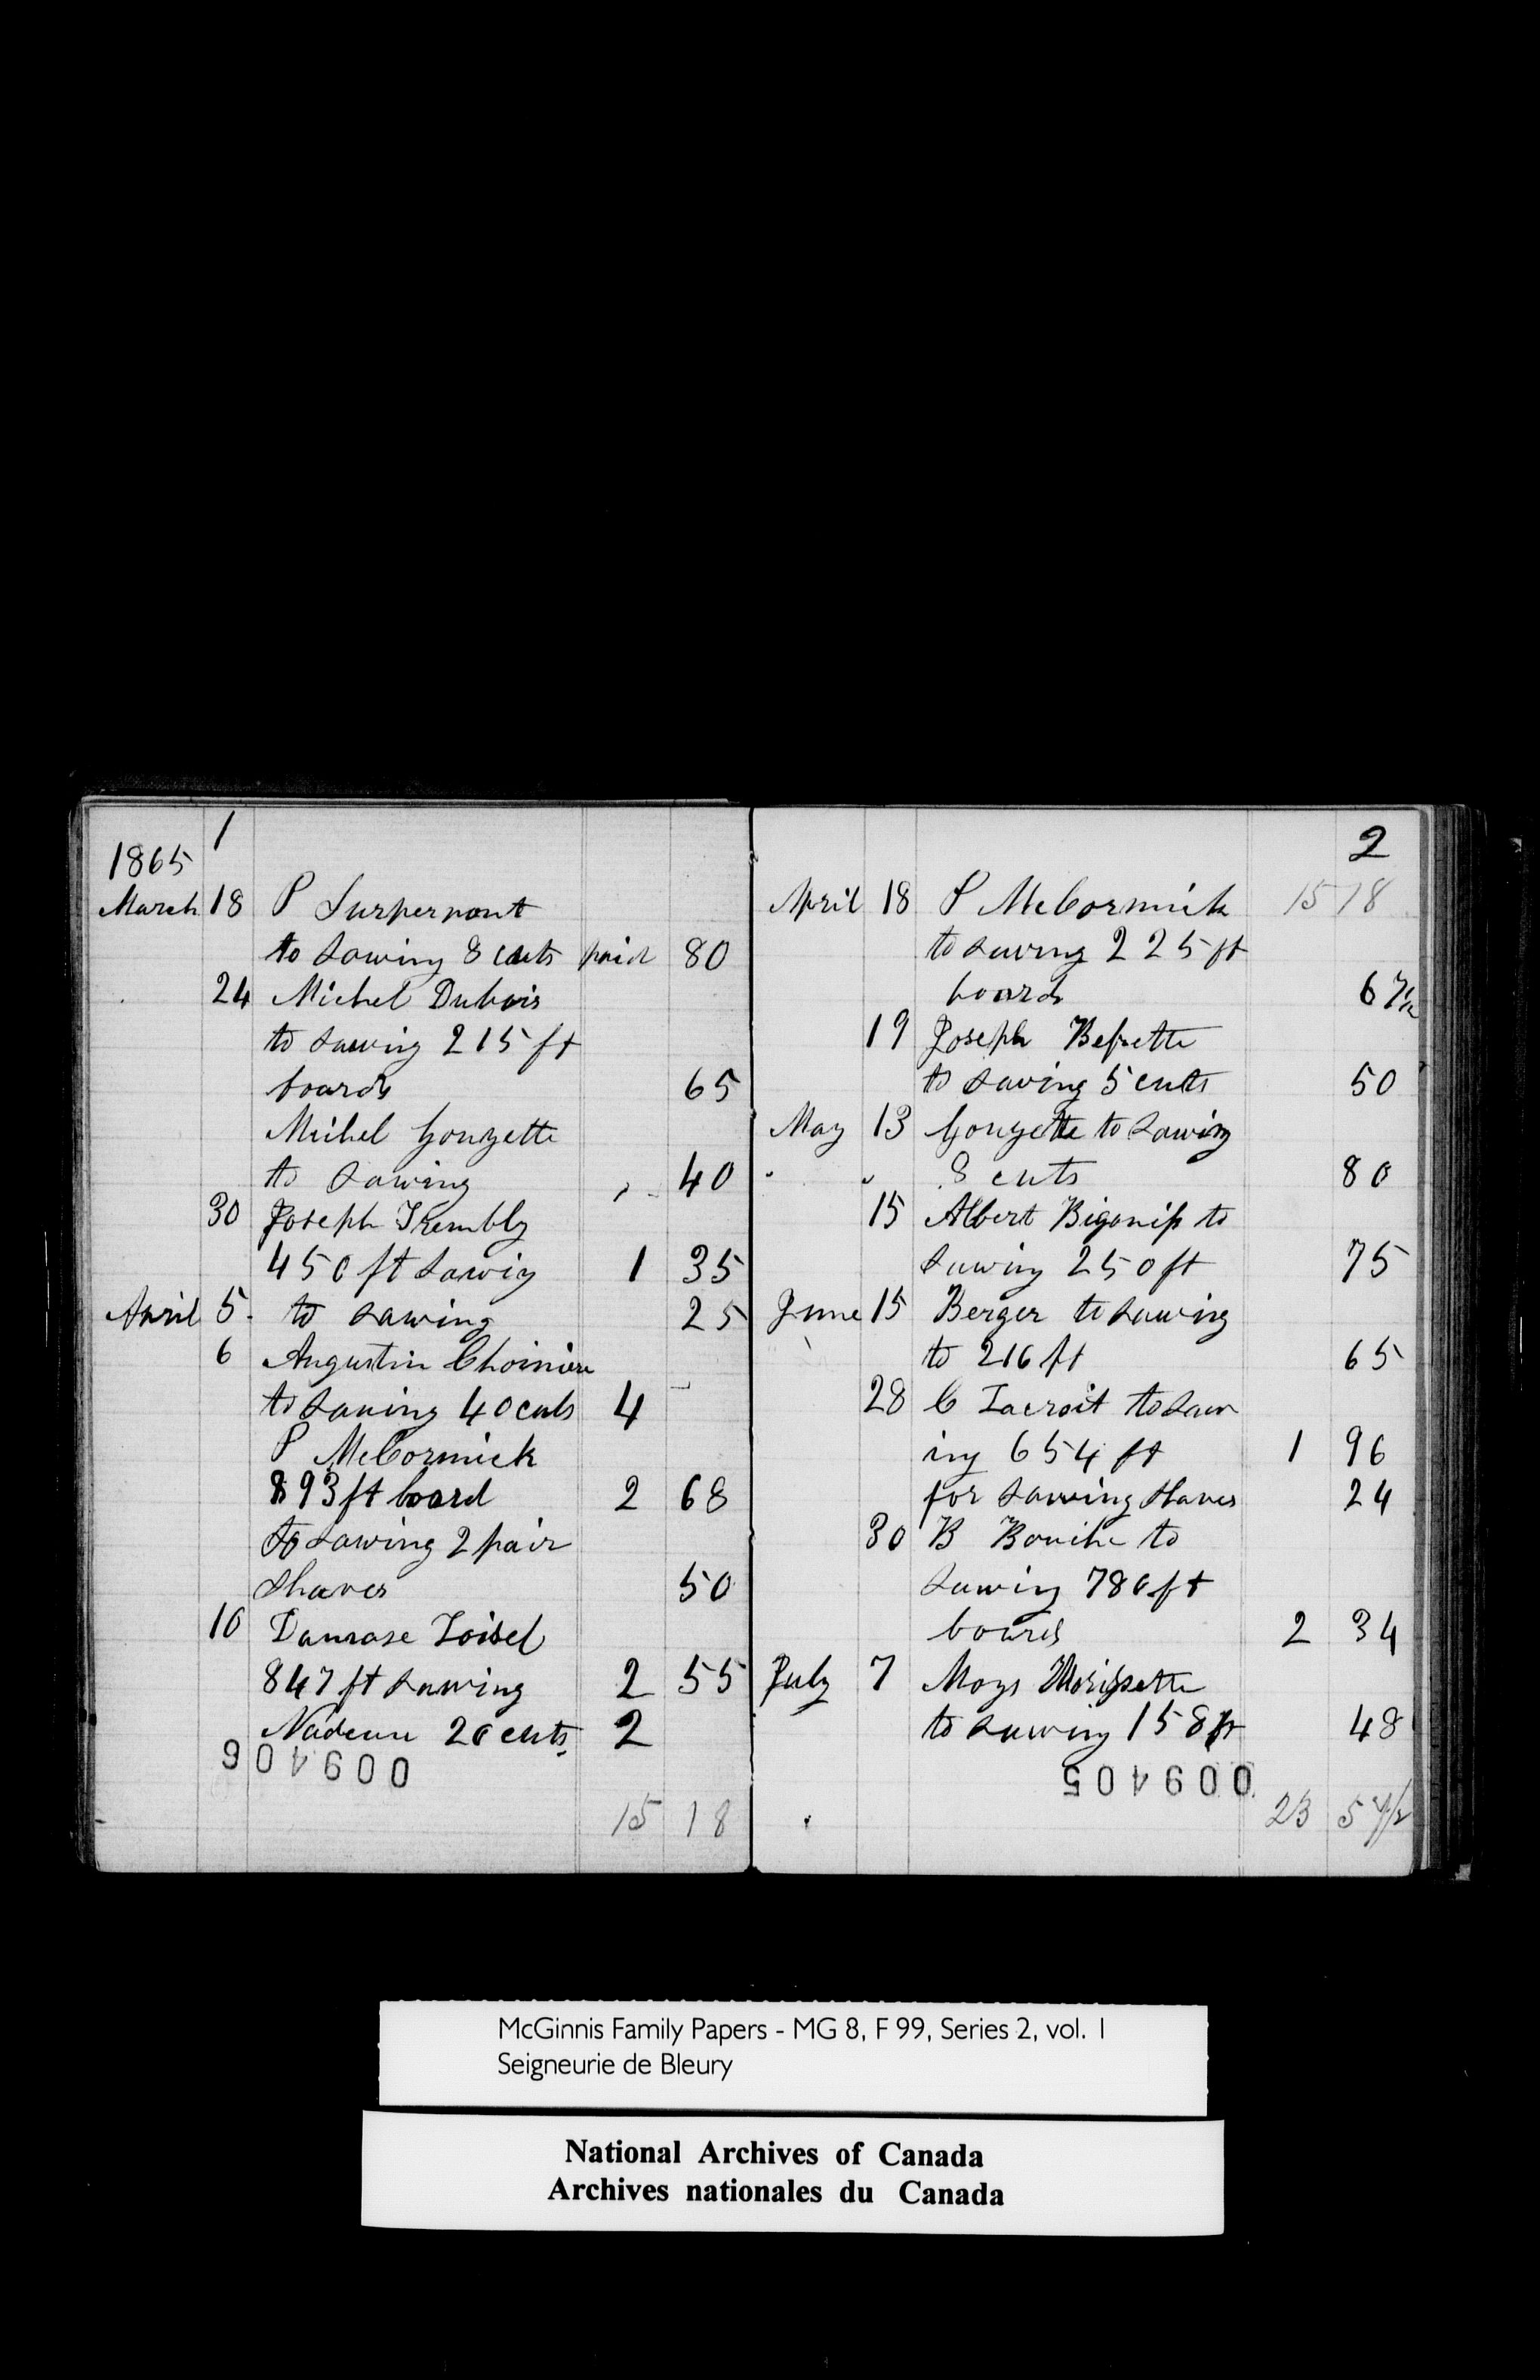 1
1865
March 18 P Surpernont
to Sawing 8 cuts paid 80
24 Michel Dubois
to Sawing 215 ft
boards 65
Michel Gonyette
to Sawing 40
30 Joseph Trembly
450 ft Sawig 1 35
April 5 to sawing 25
6 Augustin Choiniere
to Sawing 40 cuts 4
P McCormick
893 ft board 2 68
to sawing 2 pair
Shaves 50
10 Damase Loisel
847 ft Sawing 2 55
Nadeau 20 cuts 2
009406
15 18
2
April 18 P McCormick 15 18
to sawing 225 ft
boards 67½
19 Joseph Befrette
to Sawing 5 cuts 50
May 13 Gonyette to Sawing
" " 8 cuts 80
15 Albert to
Sawing 250 ft 75
June 15 Berger to Sawing
to 216 ft 65
28 C Lacroit to Saw
ing 654 ft 1 96
for Sawing Staves 24
30 B to
Sawing 780 ft
boards 2 34
July 7 Moys Morissette
to Sawing 158 ft 48
009405
23 57½
McGinnis Family Papers - MG 8, F 99, Series 2, vol. 1
Seigneurie de Bleury
National Archives of Canada
Archives nationales du Canada